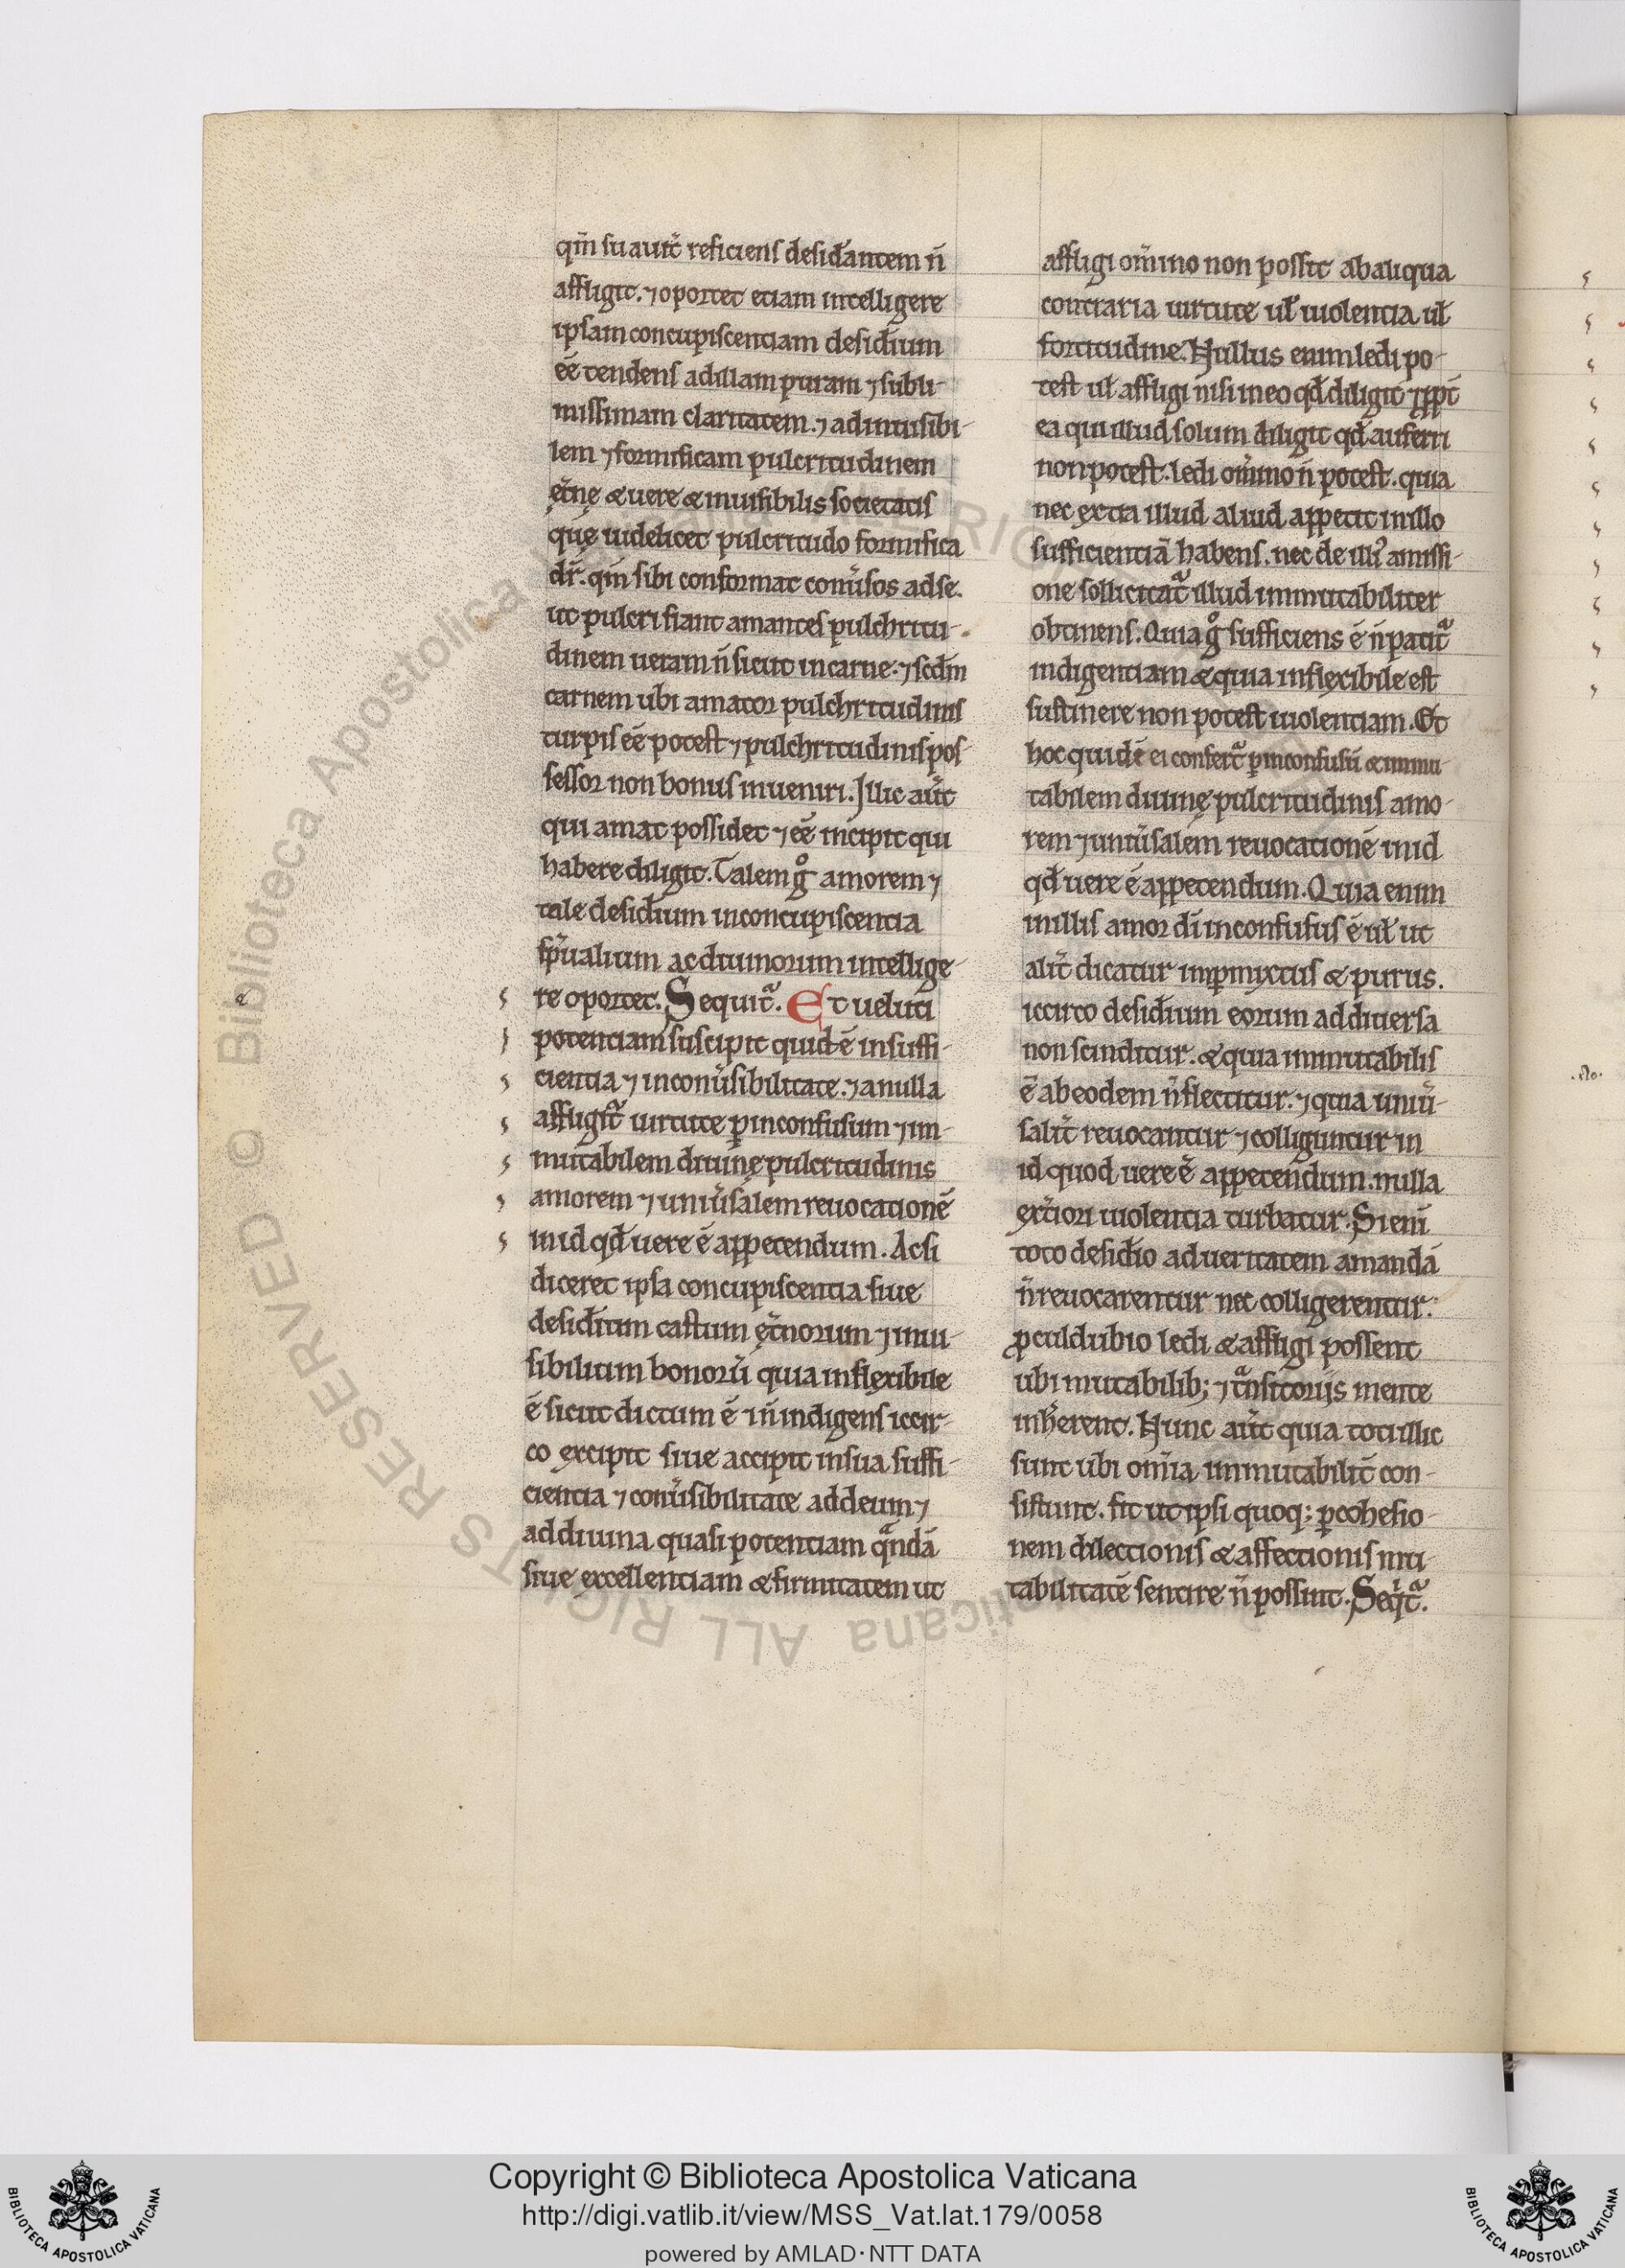 qm̄ suauit̄ reficiens desid̄antem n̄
affligit. ⁊ oportet etiam intelligere
ipsam concupiscentiam desid̄ium
ēe tendens ad illam puram ⁊ subli-
missimam claritatem. ⁊ ad inuisibi-
lem ⁊ formificam pulcritudinem
et̄nę & uere & inuisibilis societatis
quę uidelicet pulcritudo formifica
dr̄. qm̄ sibi conformat conūsos ad se.
ut pulcri fiant amantes pulchritu-
dinem ueram n̄ sicut in carne. ⁊ scd̄m
carnem ubi amator pulchritudinis
turpis ēe potest ⁊ pulchritudinis pos-
sessor non bonus inueniri. Illic aūt
qui amat possidet ⁊ ēe incipit qui
habere diligit. Talem gͦ amorem ⁊
tale desid̄ium in concupiscentia
sp̄ualium ac diuinorum intellige-
re oportet. Sequitᷓ. Et ueluti
potentiam suscipit quidē insuffi-
cientia ⁊ inconūsibilitate. ⁊ a nulla
affligitᷓ uirtute ꝑ inconfusum ⁊ im-
mutabilem diuinę pulcritudinis
amorem ⁊ uniūsalem reuocationē
in id qd̄ uere ē appetendum. Ac si
diceret ipsa concupiscentia siue
desid̄ium castum et̄norum ⁊ inui-
sibilium bonorū quia inflexibile
ē sicut dictum ē ⁊ n̄ indigens iccir-
co excipit siue accipit in sua suffi-
cientia ⁊ conūsibilitate ad deum ⁊
ad diuina quasi potentiam qᷓndā
siue excellentiam & firmitatem ut
affligi om̄ino non possit ab aliqua
contraria uirtute ul̄ uiolentia ul̄
fortitudine. Nullus enim ledi po-
test ul̄ affligi nisi in eo qd̄ diligit ⁊ ꝓpt̄
ea qui illud solum diligit qd̄ auferri
non potest. ledi om̄ino n̄ potest. quia
nec extra illud aliud appetit in illo
sufficientiā habens. nec de illiꝰ amissi-
one sollicitatᷓ illud immutabiliter
obtinens. Quia gͦ sufficiens ē n̄ patitᷓ
indigentiam & quia inflexibile est
sustinere non potest uiolentiam. Et
hoc quidē ei confertᷓ ꝑ inconfusū & immu-
tabilem diuinę pulcritudinis amo-
rem ⁊ uniūsalem reuocationē in id
qd̄ uere ē appetendum. Quia enim
in illis amor di̅ inconfusus ē ul̄ ut
alit̄ dicatur impmixtus & purus.
iccirco desid̄ium eorum ad diuersa
non scinditur. & quia immutabilis
ē ab eodem n̄ flectitur. ⁊ quia uniū-
salit̄ reuocantur ⁊ colliguntur in
id quod uere ē appetendum. nulla
ext̄iori uiolentia turbatur. Si eni̅
toto desid̄io ad ueritatem amandā
n̄ reuocarentur nec colligerentur.
ꝓculdubio ledi & affligi possent
ubi mutabilib; ⁊ tᷓnsitoriis mente
inh̄erent. Nunc aūt quia toti illic
sunt ubi om̄ia immutabilit̄ con-
sistunt. fit ut ipsi quoq; ꝑ cohesio-
nem dilectionis & affectionis mu-
tabilitatē sentire n̄ possint. Seqͥtᷓ.
.No.
Copyright © Biblioteca Apostolica Vaticana
http://digi.vatlib.it/view/MSS_Vat.lat.179/0058
powered by AMLAD·NTT DATA
BIBLIOTECA APOSTOLICA VATICANA
BIBLIOTECA APOSTOLICA VATICANA
© Biblioteca Apostolica Vaticana ALL RIGHTS RESERVED